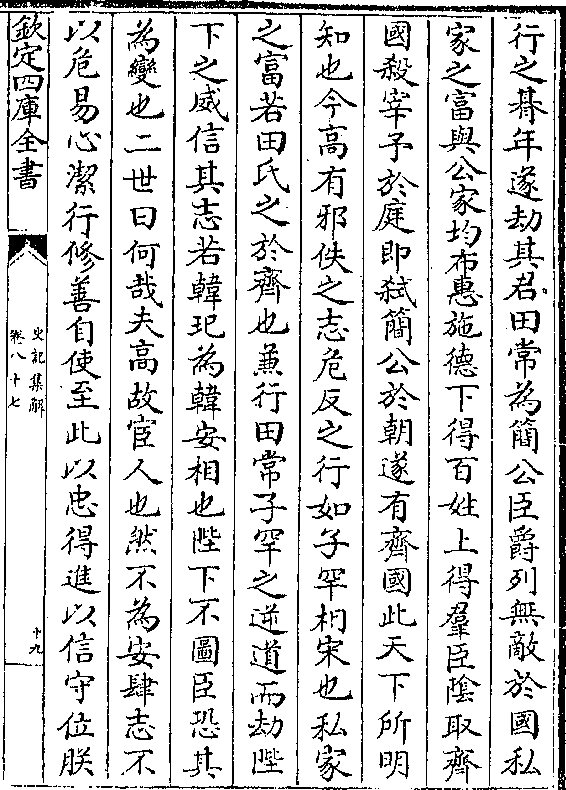 行之朞年遂劫其君田常為簡公臣爵列無敵於國私
家之富與公家均布惠施德下得百姓上得羣臣陰取齊
國殺宰予於庭即弑簡公於朝遂有齊國此天下所明
知也今高有邪佚之志危反之行如子罕相宋也私家
之富若田氏之於齊也兼行田常子罕之逆道而劫陛
下之威信其志若韓玘為韓安相也陛下不圖臣恐其
為變也二世曰何哉夫高故宦人也然不為安肆志不
以危易心潔行修善自使至此以忠得進以信守位朕
欽定四庫全書
史記集解
卷八十七
十九